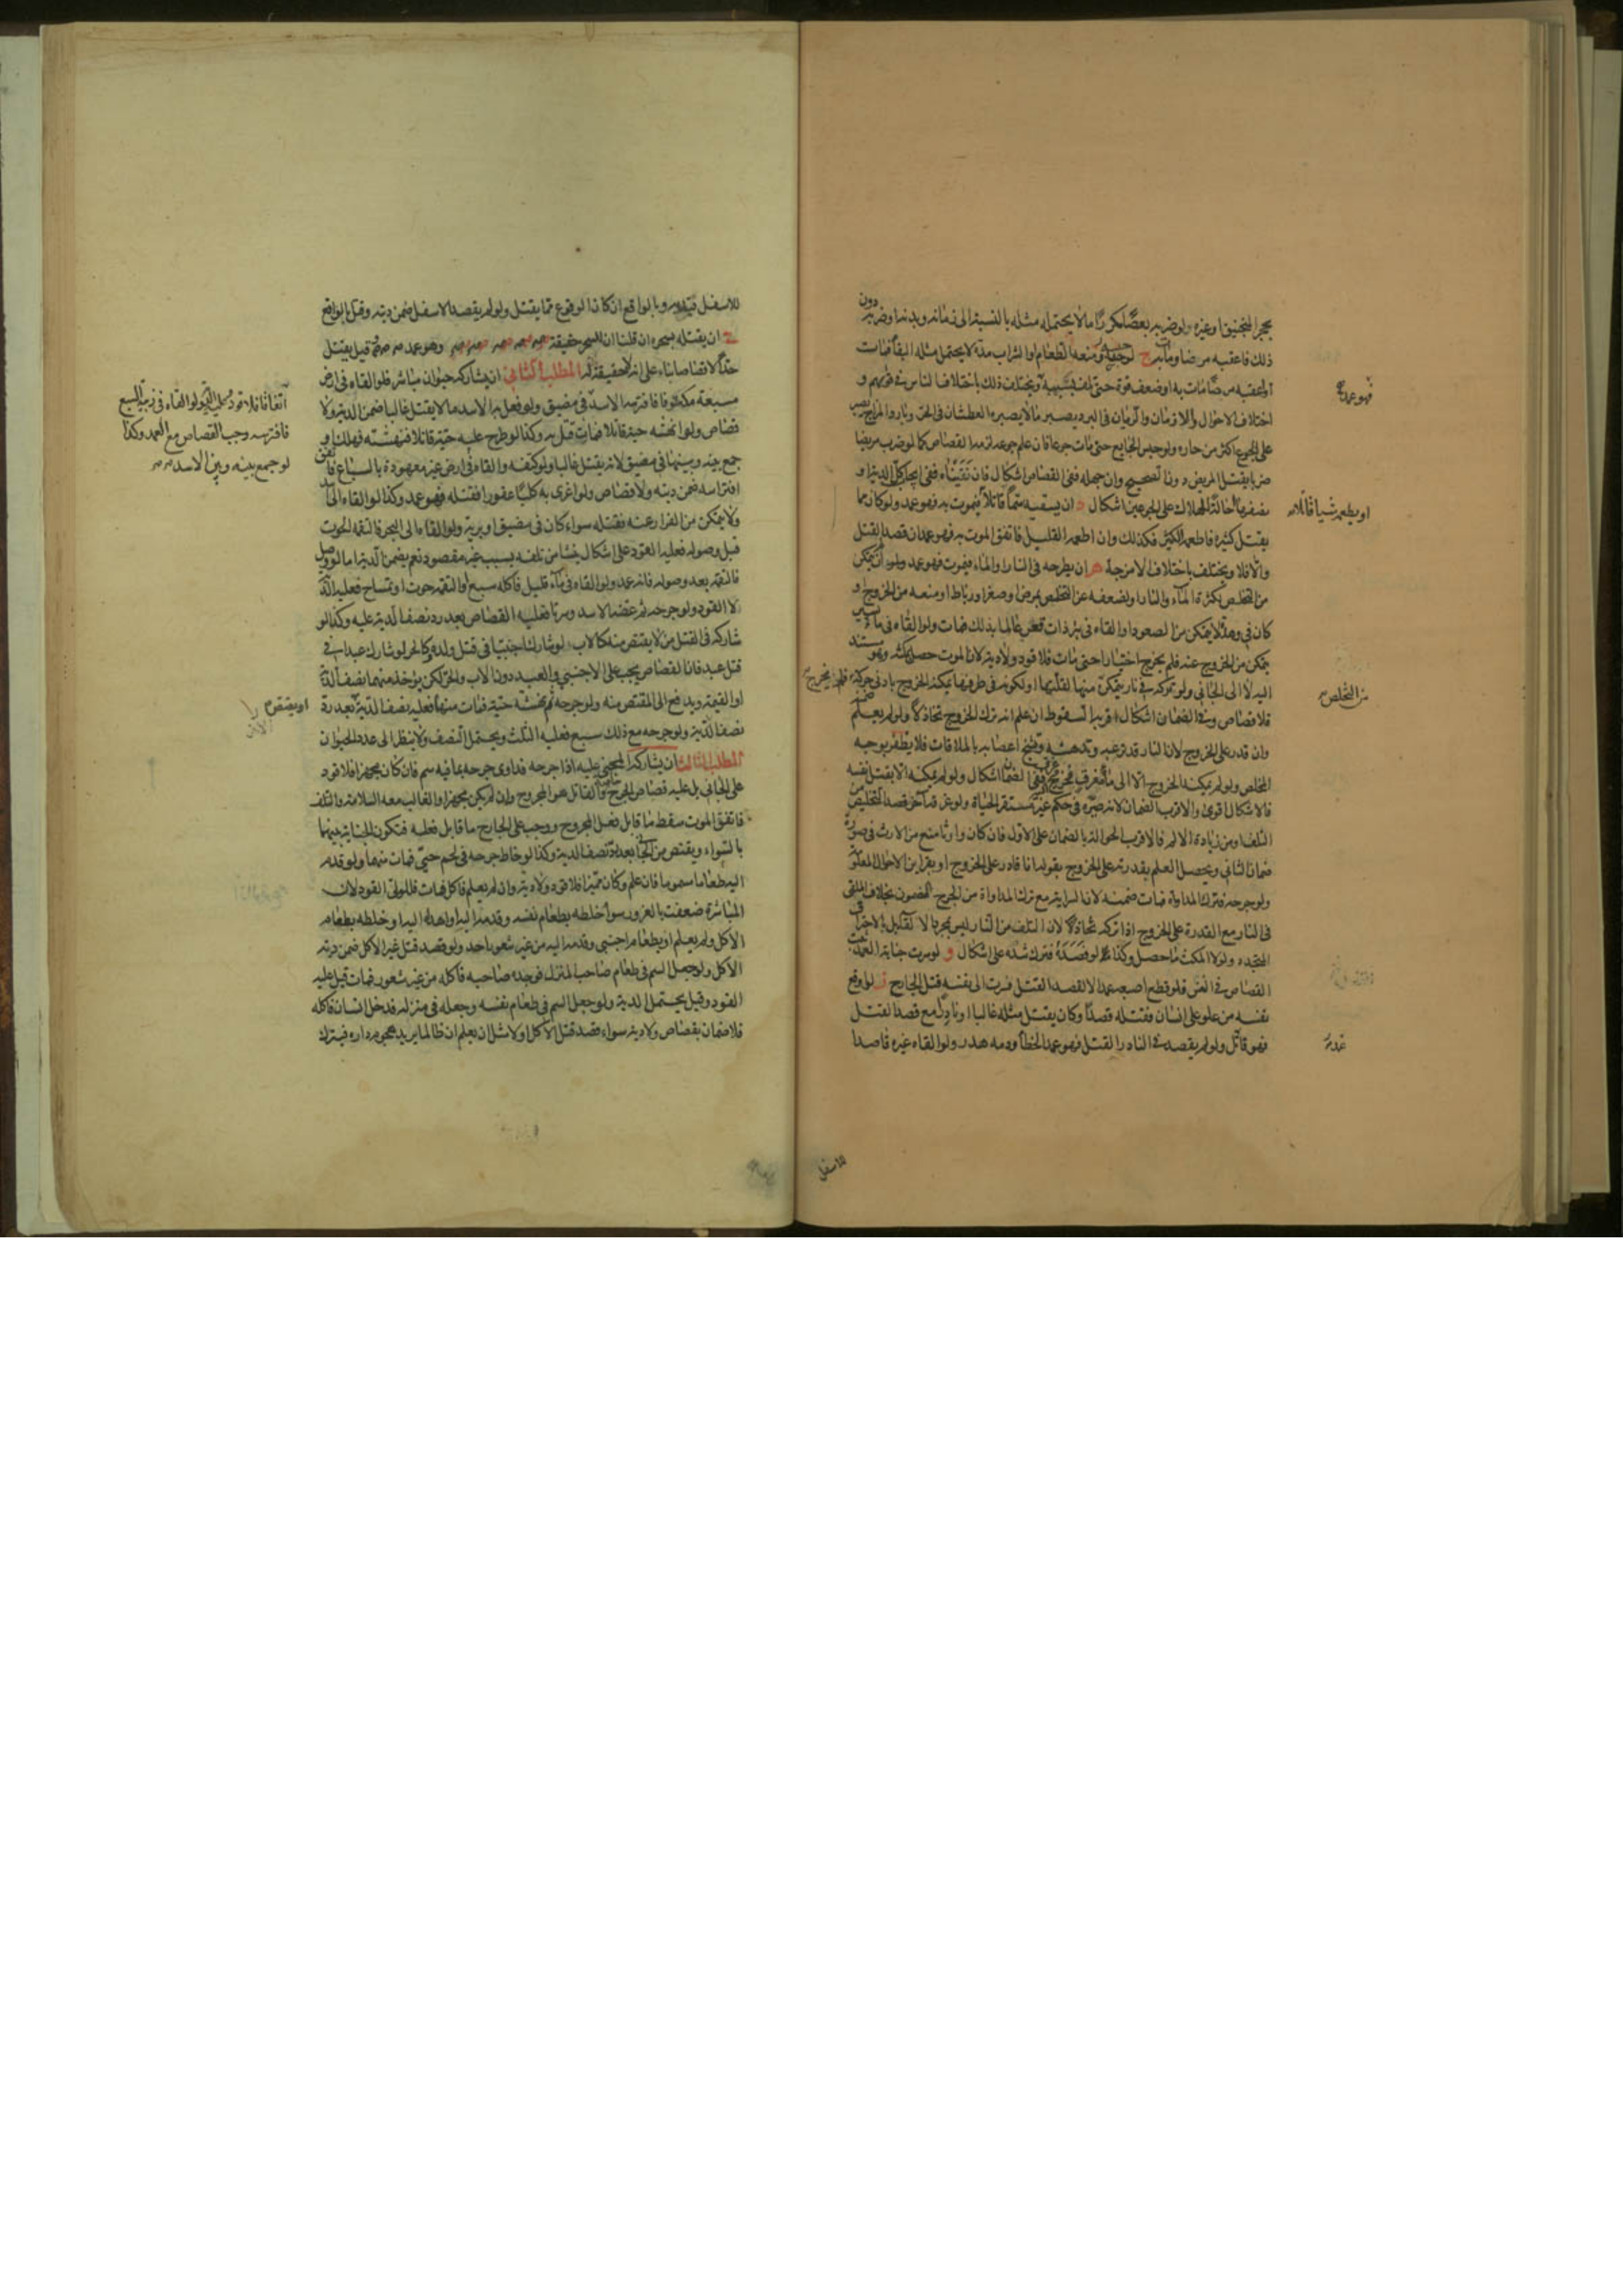 بحجر المنجنيق او غيره ولو ضربه بعصا مكررا ما لا يحتمله مثله بالنسبة الى زمانه وبدنه او ضربه دون
ذلك فاعقبه مرضا ومات ج لو حبسه ومنعه الطعام او الشراب مدة لا يحتمل مثله البقا فمات
او اعقبه مرضا مات به او ضعف قوة حتى تلف بسببه ويختلف ذلك باختلاف الناس في قواهم و
فهو عمد
اختلاف الاحوال والازمان فالريان في البرد يصبر ما لا يصبر العطشان في الحر وبارد المزاج يصبر
على الجوع اكثر من حاره ولو حبس الجايع حتى مات جوعا فان علم جوعه لزمه القصاص كما لو ضرب مريضا
ضربا يقتل المريض دون الصحيح وان جهله ففي القصاص اشكال فان نفيناه ففي ايجاب كل الدية او
نصفها احالة للهلاك على الجوعين اشكال د ان يسقيه سما قاتلا فيموت به فهو عمد ولو كان مما
او يطعمه شيا قاتلا
يقتل كثيره فاطعمه الكثير فكذلك وان اطعمه القليل فاتفق الموت به فهو عمد ان قصد القتل
والا فلا ويختلف باختلاف الامزجة ه ان يطرحه في النار او الماء فيموت فهو عمد ولو لم يتمكن
من التخلص لكثرة الماء والنار او لضعفه عن التخلص بمرض او صغر او رباط او منعه من الخروج او
كان في وهدة لا يتمكن من الصعود او القاه في بئر ذات نفس عالما بذلك فمات ولو القاه في ماء يسير
يتمكن من الخروج عنه فلم يخرج اختيارا حتى مات فلا قود ولا دية لان الموت حصل بلبثه وهو مستند
اليه لا الى الجاني ولو تركه في نار يتمكن منها لقلتها او لكونه في طرفها يمكنه الخروج بادنى حركة فلم يخرج
من التخلص
فلا قصاص وفي الضمان اشكال اقربه السقوط ان علم انه ترك الخروج تخاذلا ولو لم يعلم ضمنه
وان قدر على الخروج لان النار قد ترعبه وتدهشه وتشنج اعصابه بالملاقات فلا يظفر بوجه
المخلص ولو لم يمكنه الخروج الا الى ماء مغرق فخرج ففي الضمان اشكال ولو لم يمكنه الا بقتل نفسه
فالاشكال اقوى والاقرب الضمان لانه صيره في حكم غير مستقر الحياة ولو غرقه آخر قصد التخليص من
التلف او من زيادة الالم فالاقرب الحوالة بالضمان على الاول فان كان وارثا منع من الارث في صورة
ضمان الثاني ويحصل العلم بقدرته على الخروج بقوله انا قادر على الخروج او بقراين الاحوال المعلومة
ولو جرحه فترك المداواة فمات ضمنه لان السراية مع ترك المداواة من الجرح المضمون بخلاف الملقى
في النار مع القدرة على الخروج اذا تركه تخاذلا لان التلف من النار ليس بمجرد الالقاء بل بالاحتراق
المتجدد ولولا المكث ما حصل وكذا لو فصده فترك شده على اشكال و لو سرت جناية العمد ثبت
القصاص في النفس فلو قطع اصبعه عمدا لا لقصد القتل فسرت الى نفسه قتل الجارح ز لو اوقع
نفسه من علو على انسان فقتله قصدا وكان يقتل مثله غالبا او نادرا مع قصد القتل
فهو قاتل ولو لم يقصد في النادر القتل فهو عمد الخطأ ودمه هدر ولو القاه غيره قاصدا
للاسفل
للاسفل قتل به وبالواقع ان كان الوقوع مما يقتل ولو لم يقصد الاسفل ضمن ديته وقتل بالواقع
ح ان يقتله بسحره ان قلنا ان للسحر حقيقة وهو عمد وقيل يقتل
حدا لا قصاصا بناء على انه لا حقيقة له المطلب الثاني ان يشاركه حيوان مباشر فلو القاه في ارض
مسبعة مكتوفا فافترسه الاسد في مضيق ولو فعل به الاسد ما لا يقتل غالبا ضمن الدية ولا
اتفاقا فلا قود وعليه الدية ولو القاه في زبية السبع
فافترسه وجب القصاص مع العمد وكذا
لو جمع بينه وبين الاسد
قصاص ولو انهشه حية قاتلا فمات قتل به وكذا لو طرح عليه حية قاتلا فنهشته فهلك او
جمع بينه وبينها في مضيق لانه يقتل غالبا ولو كتفه والقاه في ارض غير معهودة بالسباع فاتفق
افتراسه ضمن ديته ولا قصاص ولو اغرى به كلبا عقورا فقتله فهو عمد وكذا لو القاه الى اسد
ولا يتمكن من الفرار عنه فقتله سواء كان في مضيق او برية ولو القاه الى البحر فالتقمه الحوت
قبل وصوله فعليه القود على اشكال ينشا من تلفه بسبب غير مقصود نعم يضمن الدية اما لو وصل
فالتقمه بعد وصوله فانه عمد ولو القاه في ماء قليل فاكله سبع او التقمه حوت او تمساح فعليه الدية
لا القود ولو جرحه ثم عضه الاسد وسرتا فعليه القصاص بعد رد نصف الدية عليه وكذا لو
شاركه في القتل من لا يقتص منه كالاب لو شارك اجنبيا في قتل ولده وكالحر لو شارك عبدا في
قتل عبد فان القصاص يجب على الاجنبي والعبد دون الاب والحر لكن يؤخذ منهما نصف الدية
او القيمة ويدفع الى المقتص منه ولو جرحه ثم نهشته حية فمات منهما فعليه نصف الدية بعد رد
او يقتص
نصف الدية ولو جرحه مع ذلك سبع فعليه الثلث ويحتمل النصف ولا ينظر الى عدد الحيوان
المطلب الثالث ان يشاركه المجني عليه اذا جرحه فداوى جرحه بما فيه سم فان كان مجهزا فلا قود
على الجاني بل عليه قصاص الجرح خاصة والقاتل هو المجروح وان لم يكن مجهزا والغالب معه السلامة والتلف
فاتفق الموت سقط ما قابل فعل المجروح ووجب على الجارح ما قابل فعله فتكون الجناية بينهما
بالسواء ويقتص من الجاني بعد رد نصف الدية وكذا لو خاط جرحه في لحم حي فمات منهما ولو قدم
اليه طعاما مسموما فان علم وكان مميزا فلا قود ولا دية وان لم يعلم فاكل فمات فللولي القود لان
المباشرة ضعفت بالغرور سواء خلطه بطعام نفسه وقدمه اليه او اهداه اليه او خلطه بطعام
الآكل ولم يعلم او بطعام اجنبي وقدمه اليه من غير شعور احد ولو قصد قتل غير الآكل ضمن دية
الآكل ولو جعل السم في طعام صاحب المنزل فوجده صاحبه فاكله من غير شعور فمات قيل عليه
القود وقيل يحتمل الدية ولو جعل السم في طعام نفسه وجعله في منزله فدخل انسان فاكله
فلا ضمان بقصاص ولا دية سواء قصد قتل الآكل او لا مثل ان يعلم ان ظالما يريد هجوم داره فيترك